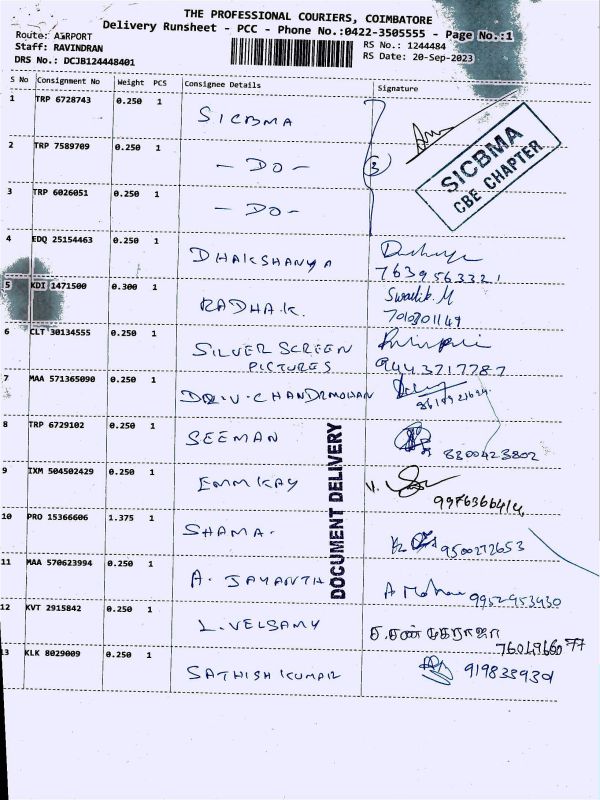 THE PROFESSIONAL COURIERS, COIMBATORE
Delivery Runsheet - PCC - Phone No.:0422-3505555 - Page No.:1
Route: AIRPORT
Staff: RAVINDRAN
DRS No.: DCJB124448401
RS No.: 1244484
RS Date: 20-Sep-2023
S No Consignment No Weight PCS Consignee Details Signature
1 TRP 6728743 0.250 1 SICBMA
SICBMA
CBE CHAPTER
2 TRP 7589709 0.250 1 - DO - 3
3 TRP 6026051 0.250 1 - DO -
4 EDQ 25154463 0.250 1 DHAKSHANYA
7639563321
5 KDI 1471500 0.300 1 RADHA.K. Swastik.M
6 CLT 30134555 0.250 1 SILVER SCREEN
PICTURES 9443717787
7 MAA 571365090 0.250 1 DR.V.CHANDRMOHAN
8 TRP 6729102 0.250 1 SEEMAN 8300423802
9 IXM 504502429 0.250 1 EMMKAY V.
9976366414
10 PRO 15366606 1.375 1 SHAMA. 9500272653
11 MAA 570623994 0.250 1 A. JAYANTH A Mohan 9952953930
12 KVT 2915842 0.250 1 L.VELSAMY
13 KLK 8029009 0.250 1 SATHISH KUMAR 9198339301
DOCUMENT DELIVERY